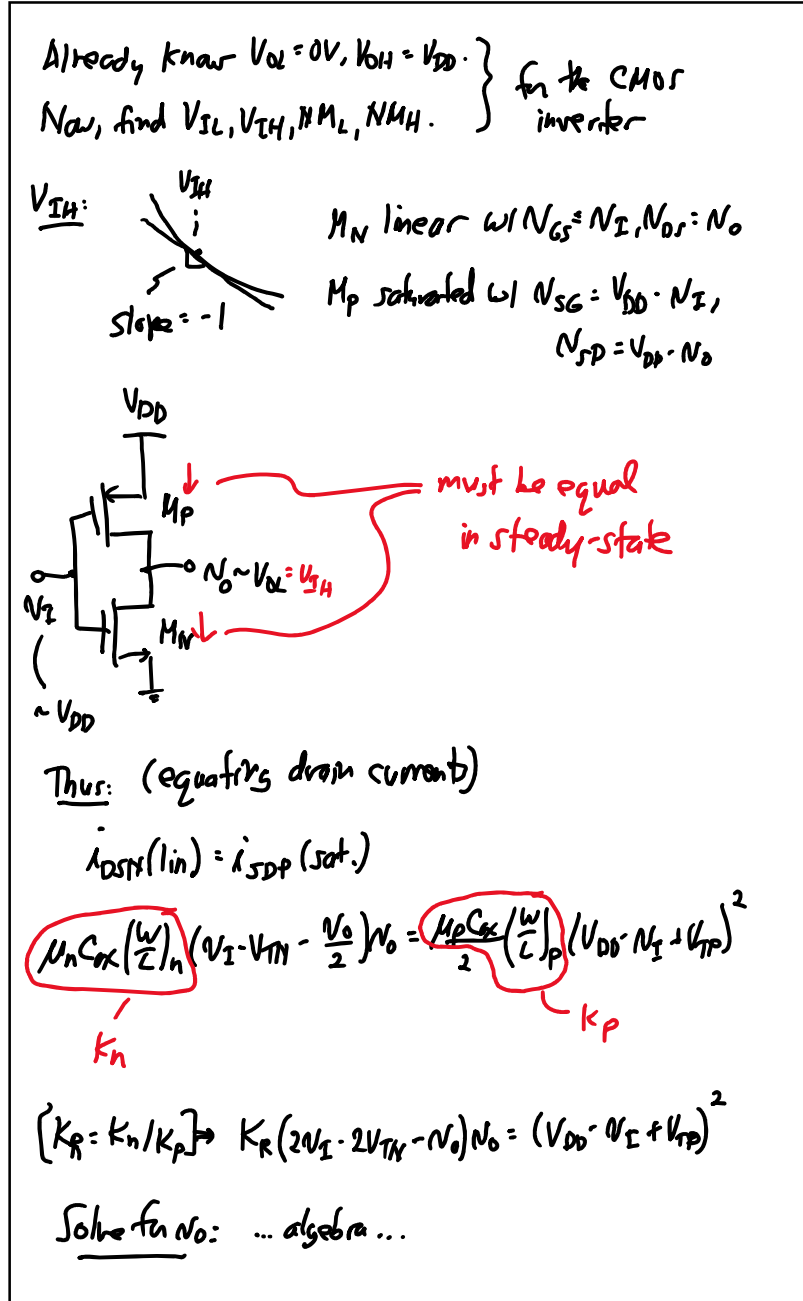 Already know V_OL = 0V, V_OH = V_DD. } for the CMOS
Now, find V_IL, V_IH, NM_L, NM_H. inverter
V_IH:
V_IH
slope = -1
M_N linear w/ v_GS = v_I, v_DS = v_O
M_P saturated w/ v_SG = V_DD - v_I,
v_SD = V_DD - v_O
V_DD
M_P
must be equal
in steady-state
v_O ~ V_OL = v_IH
v_I
M_N
~ V_DD
Thus: (equating drain currents)
i_DSN (lin.) = i_SDP (sat.)
μ_n C_ox (W/L)_n (v_I - V_TN - v_O/2) v_O = μ_p C_ox/2 (W/L)_p (V_DD - v_I + V_TP)^2
K_n
K_p
[K_R = K_n/K_p] ⇒ K_R (2v_I - 2V_TN - v_O) v_O = (V_DD - v_I + V_TP)^2
Solve for v_O: ... algebra ...